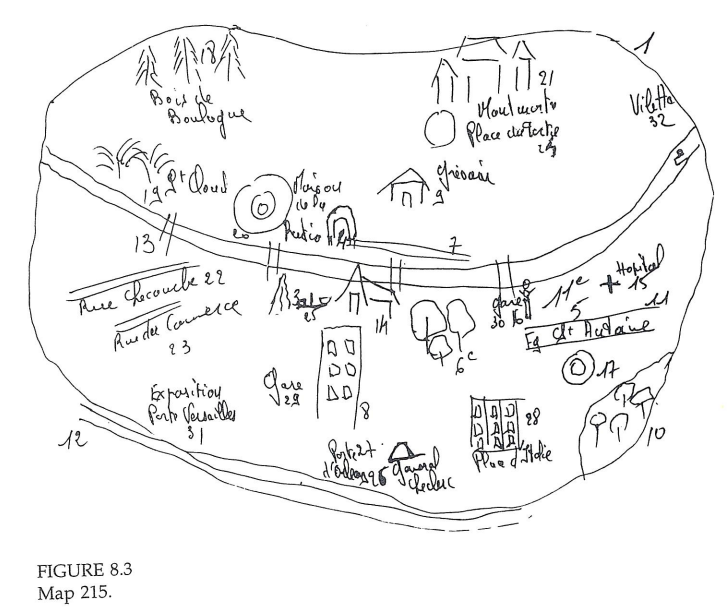 1
18
Bois de
Boulogne
21
Place du Tertre
24
Vilette
32
19 St Cloud
Maison
de la
Radio
20
4
9
7
13
Rue Lecourbe 22
Rue du Commerce
23
3
25
14
6e
Gare
30 16
11e
5
Hôpital
15
11
Fg St Antoine
17
10
12
Exposition
Porte Versailles
31
Gare
29
8
28
Place d'Italie
Porte 27
d'Orléans 26
General
Leclerc
FIGURE 8.3
Map 215.